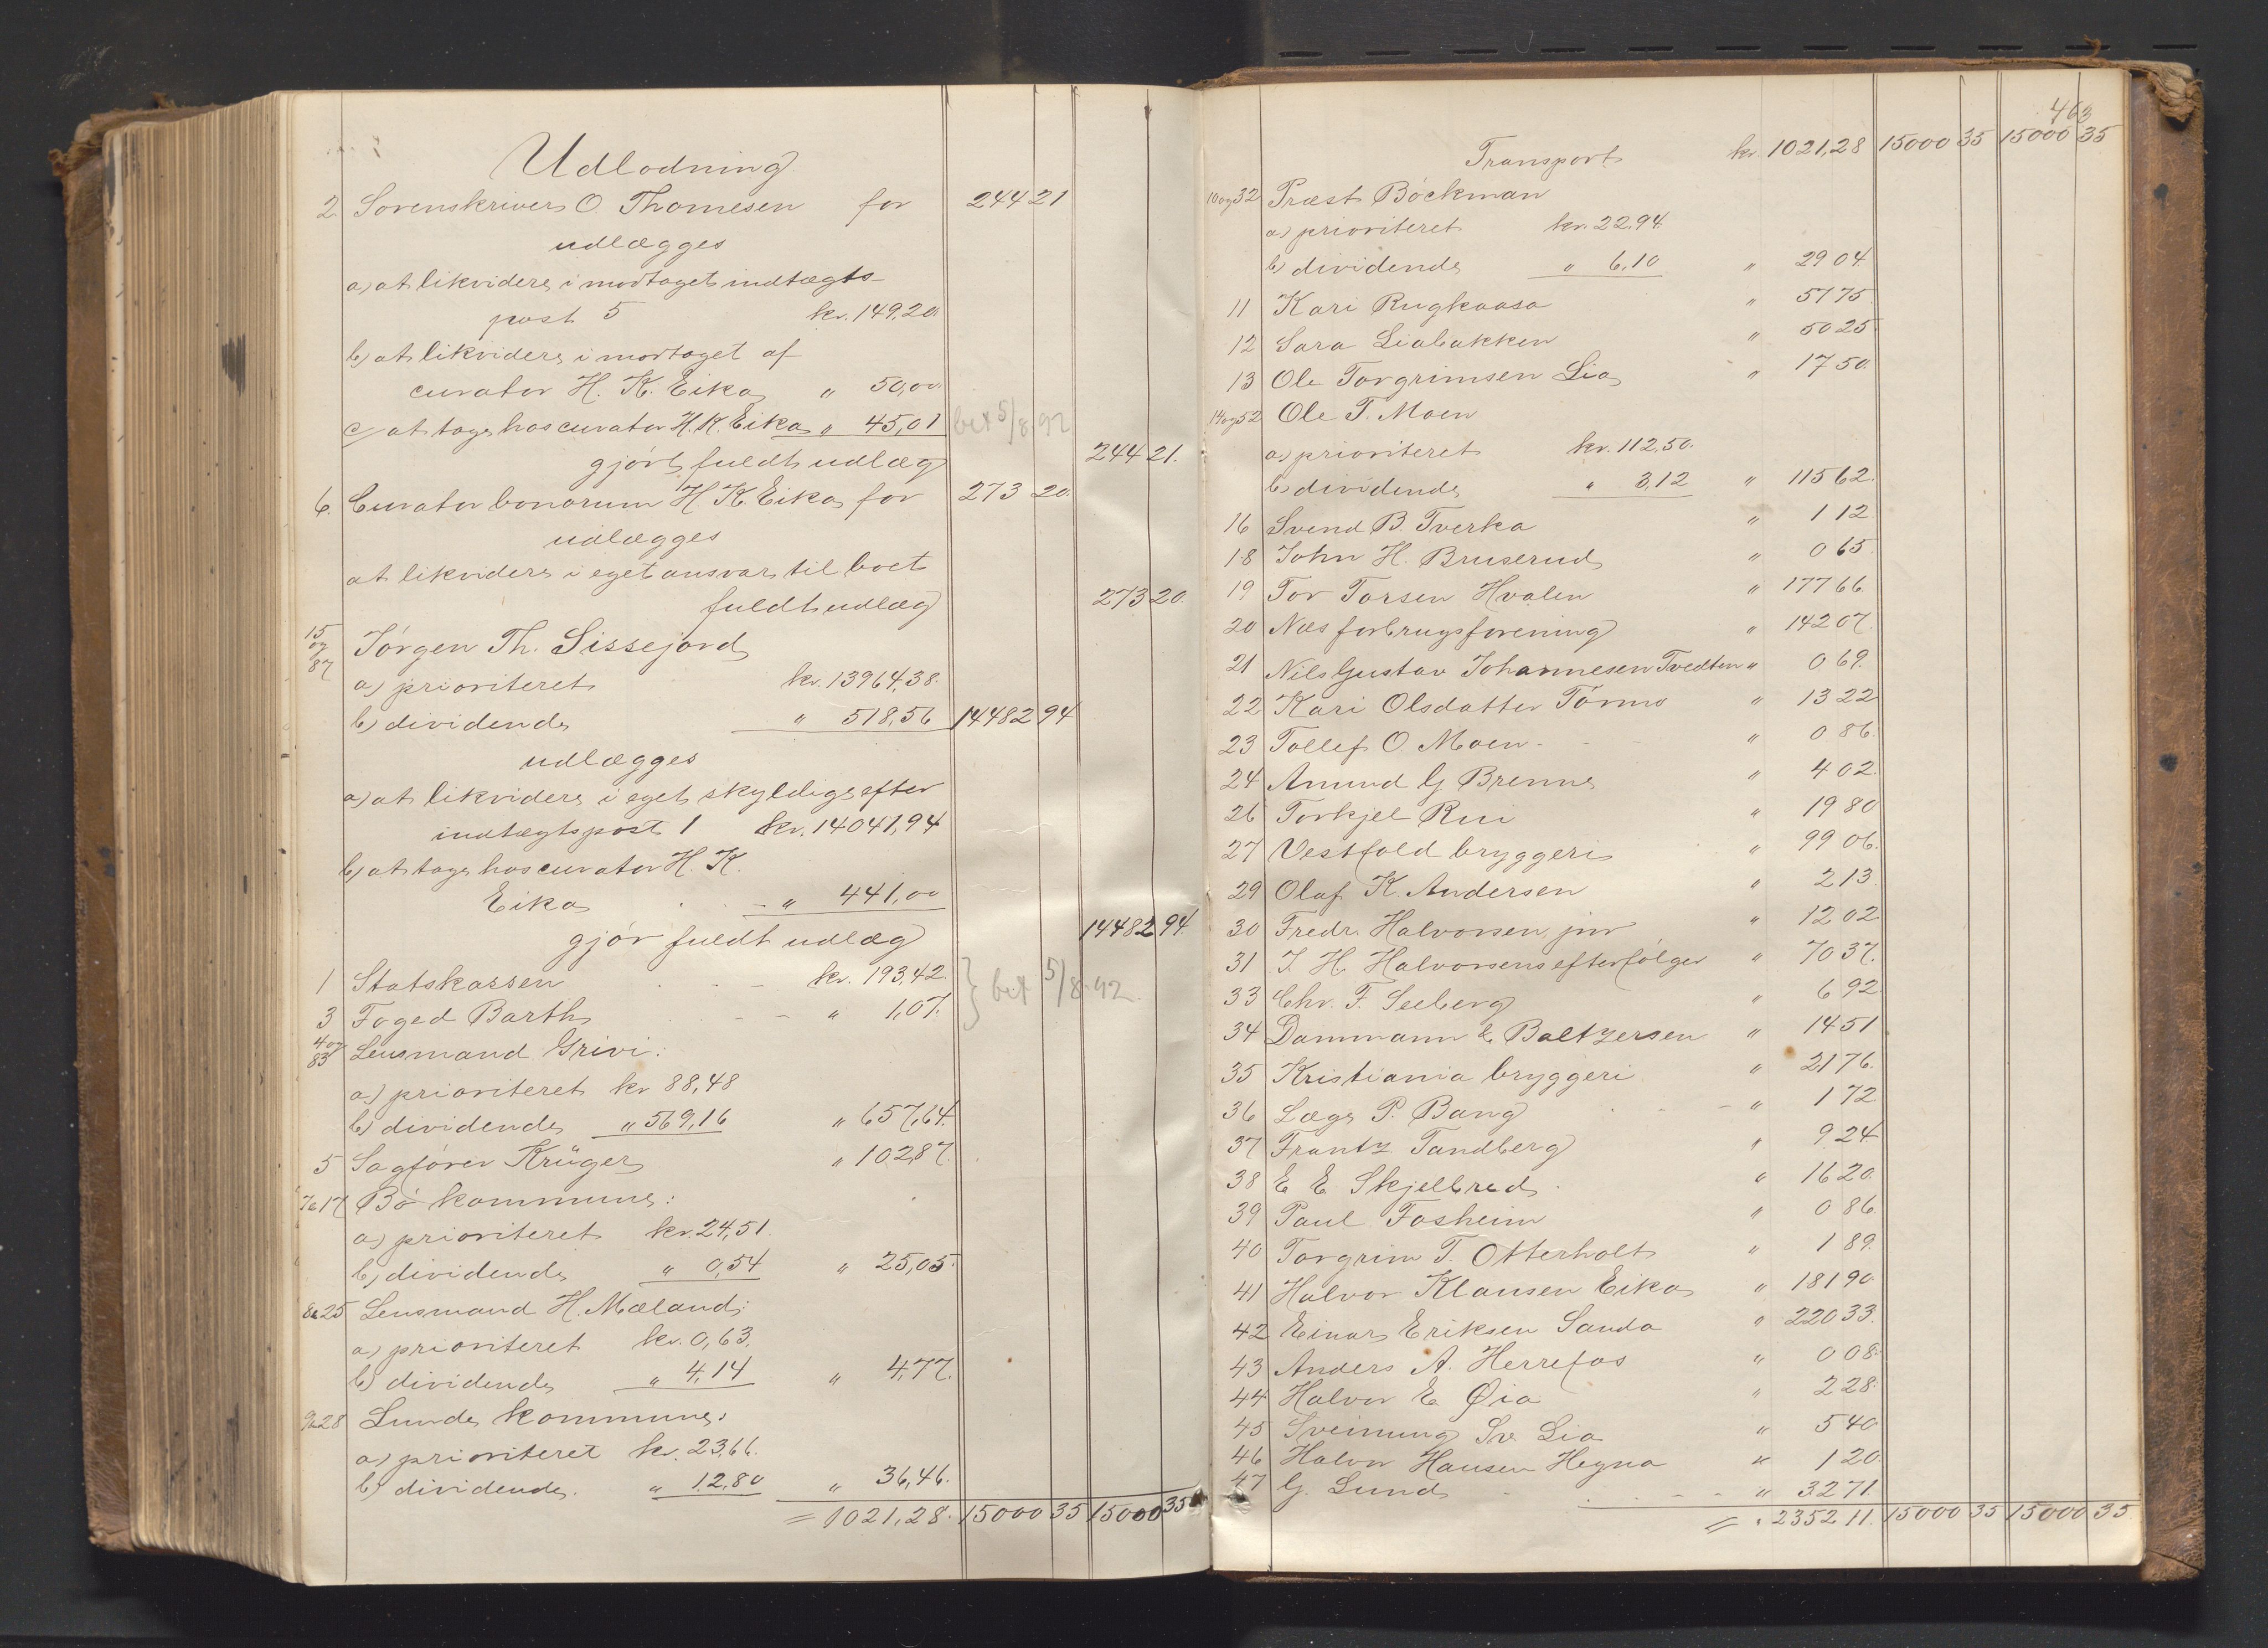 Udlodning
2. Sorenskriver O Thomesen for 244 21
udlægges
a) at likvidere i modtaget indtægts-
post 5 kr. 149,20.
b) at likvidere i modtaget af
curator H. K. Eika " 50,00
c) at tage hos curator H. K. Eika " 45,01 bet 5/8 92
gjört fuldt udlæg 244 21.
6. Curator bonorum H K. Eika for 273 20.
udlægges
at likvidere i eget ansvar til boet
fuldt udlæg 273 20.
15 og 87 Jörgen Th. Sissejord
a) prioriteret kr. 13964,38.
b) dividende " 518,56 14482 94
udlægges
a) at likvidere i eget skyldige efter
indtægtspost 1 kr. 14041,94
b) at tage hos curator H. K.
Eika - " 441,00
gjör fuldt udlæg 14482 94.
1 Statskassen kr. 193,42. } bet 5/8 92.
3 Foged Barth " 1,07.
4 og 83 Lensmand Grivi:
a) prioriteret kr 88,48
b) dividende " 569,16 " 657,64.
5 Sagförer Krüger " 102,87.
7 & 17 Bö kommune:
a) prioriteret kr. 24,51.
b) dividende " 0,54 " 25,05.
8 & 25 Lensmand H. Mæland:
a) prioriteret kr. 0,63.
b) dividende " 4,14 " 4,77.
9 & 28 Lunde kommune:
a) prioriteret kr. 23,66.
b) dividende. " 12,80 " 36,46.
= 1021,28. 15000 35 15000 35
463
Transport kr. 1021,28 15000 35 15000 35
10 og 32 Præst Böckman
a) prioriteret kr. 22,94.
b) dividende " 6,10 " 29 04
11 Kari Rugkaasa " 51 75.
12 Sara Liabakken " 50 25.
13 Ole Torgrimsen Lia " 17 50.
14 og 52 Ole T. Moen
a) prioriteret kr. 112,50.
b) dividende " 3,12 " 115 62.
16 Svend B. Tverka " 1 12.
18 John H. Bruserud " 0 65.
19 Tor Torsen Hvalen " 177 66.
20 Næs forbrugsforening " 142 07.
21 Nils Gustav Johannesen Tvedten " 0 69.
22 Kari Olsdatter Törmo " 13 22
23 Tollef O. Moen - " 0 86.
24 Amund G Brenne " 4 02.
26 Torkjel Rui " 19 80
27 Vestfold bryggeri " 99 06.
29 Olaf K. Andersen " 2 13.
30 Fredr. Halvorsen jnr " 12 02
31 J. H. Halvorsens efterfölger " 70 37.
33 Chr. F. Seeberg " 6 92
34 Dammann & Baltzersen " 14 51
35 Kristiania bryggeri " 21 76.
36 Læge P. Bang - " 1 72
37 Frantz Tandberg " 9 24
38 E E Skjelbred " 16 20.
39 Paul Fosheim " 0 86
40 Torgrim T. Otterholt " 1 89.
41 Halvor Klausen Eika " 181 90
42 Einar Eriksen Sanda " 220 33.
43 Anders A. Herrefos " 0 08.
44 Halvor E Øia " 2 28.
45 Sveinung Sv. Lia " 5 40
46 Halvor Hansen Hegna " 1 20.
47 G. Lund " 32 71
= " 2352 11. 15000 35 15000 35.